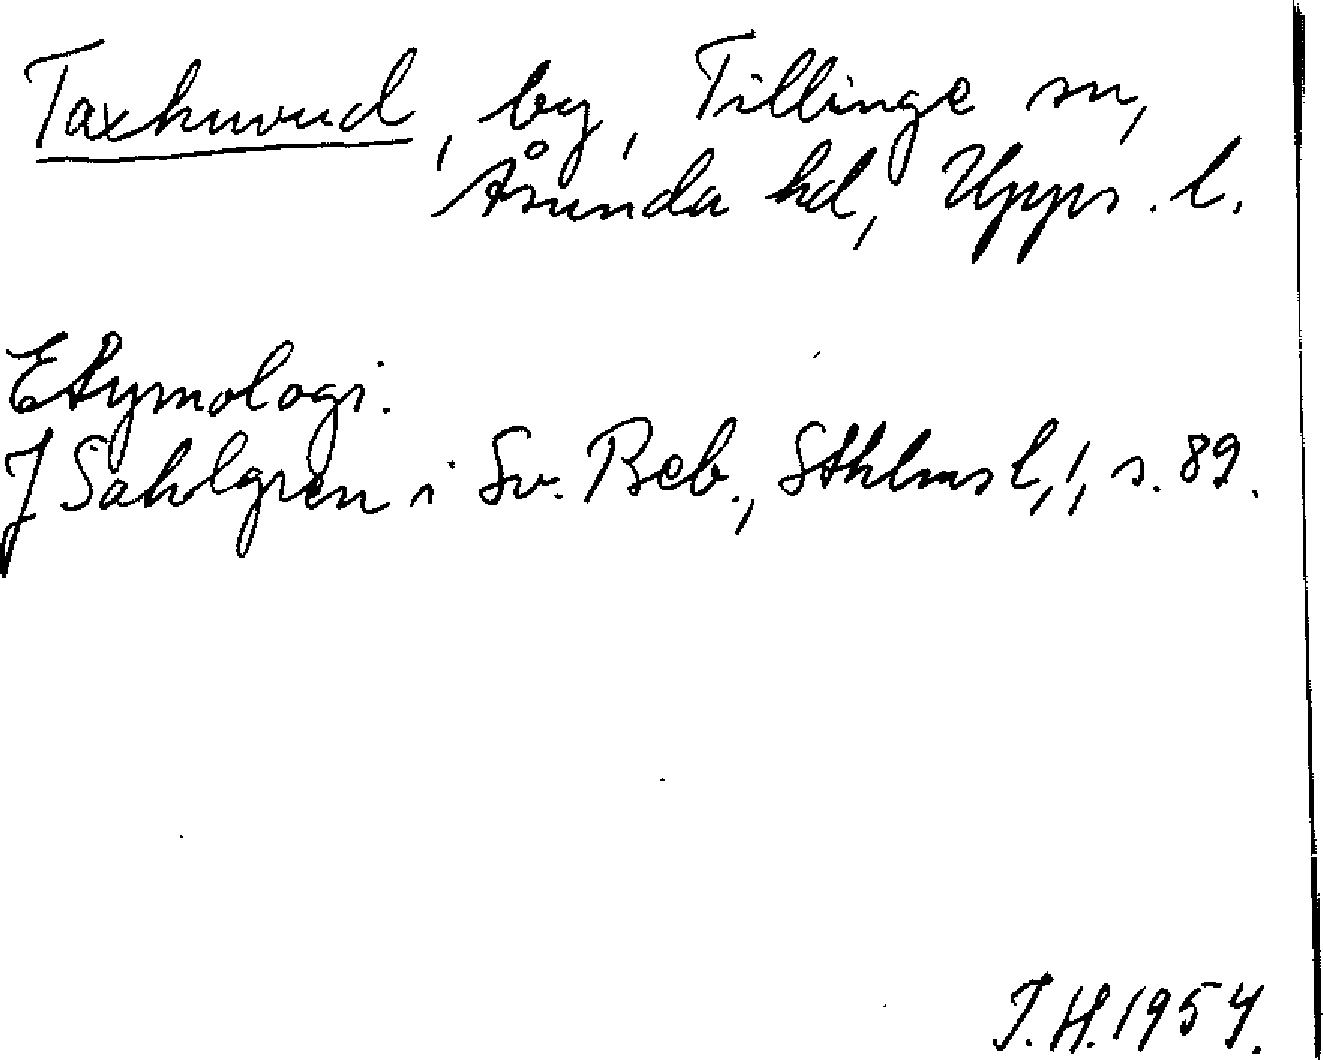 Taxhuvud, by, Tillinge sn,
Åsunda hd, Upps. l.
Etymologi.
J Sahlgren i Sv. Beb., Sthlms l, 1, s. 89.
T.H. 1954.